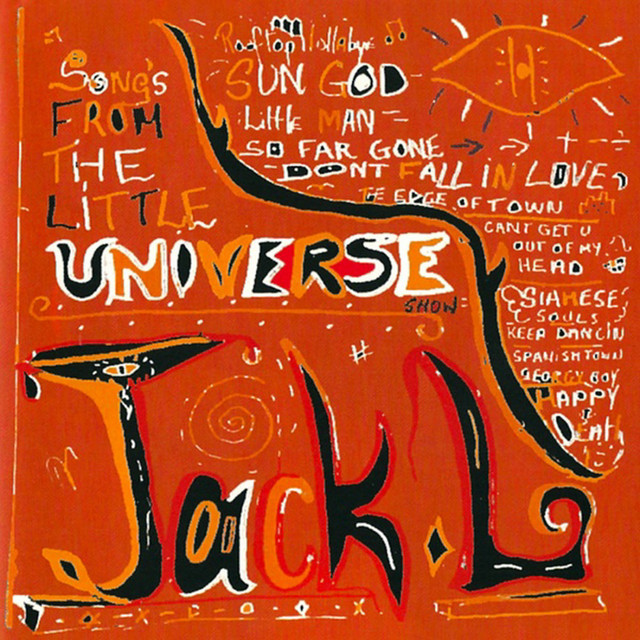 Songs
FROM
THE
LITTLE
UNIVERSE
SHOW
Rooftop lullabye
SUN GOD
Little MAN
SO FAR GONE
DONT FALL IN LOVE
THE EDGE OF TOWN
CANT GET U
OUT OF MY
HEAD
SIAMESE
SOULS
KEEP DANCIN
SPANISH TOWN
GEORGY BOY
HAPPY
DEATH
Jack.L